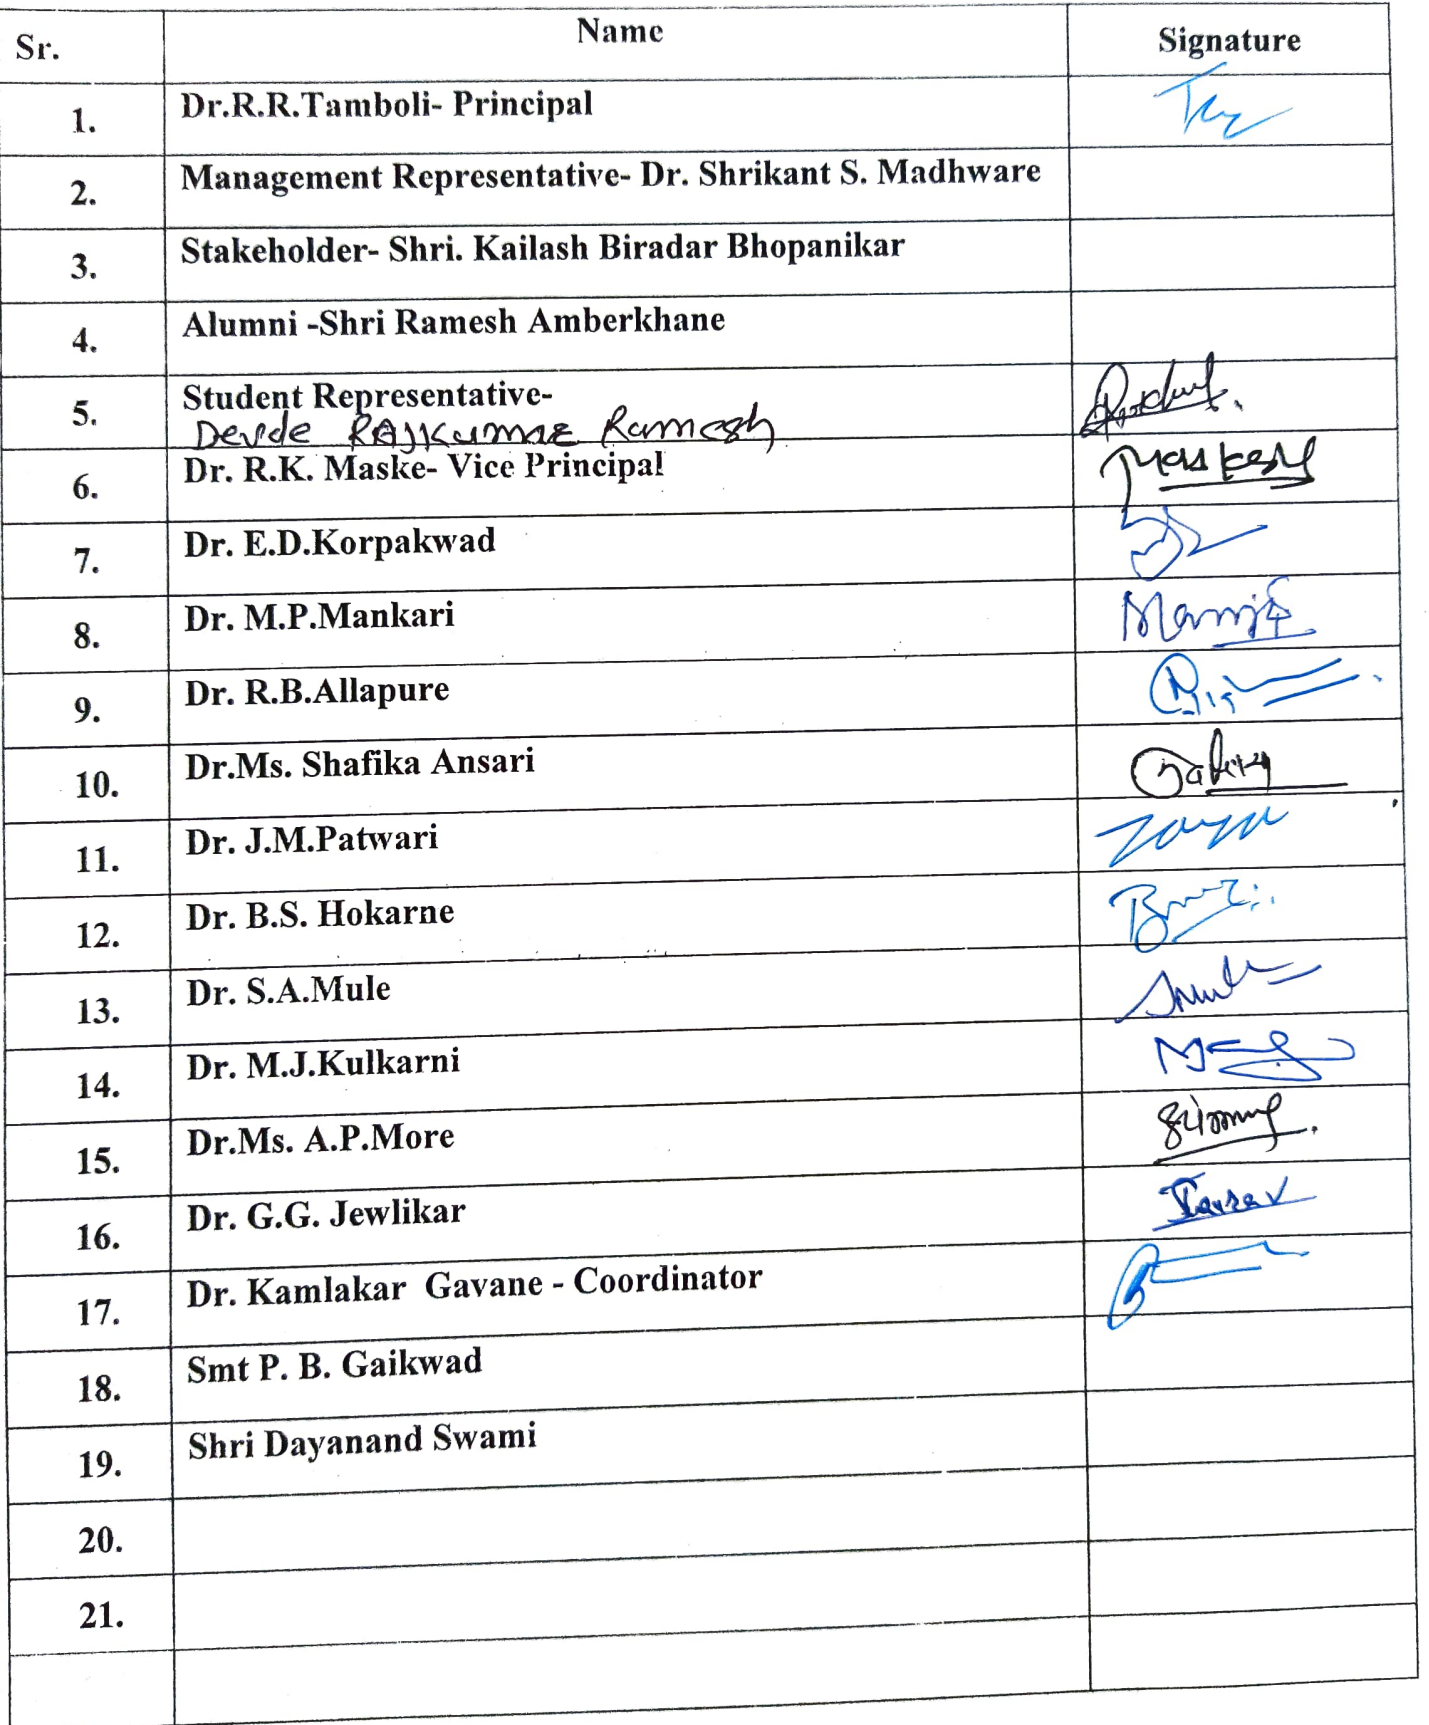 Sr. Name Signature
1. Dr.R.R.Tamboli- Principal
2. Management Representative- Dr. Shrikant S. Madhware
3. Stakeholder- Shri. Kailash Biradar Bhopanikar
4. Alumni -Shri Ramesh Amberkhane
5. Student Representative-
Devde RAJKUMAR Ramesh
6. Dr. R.K. Maske- Vice Principal
7. Dr. E.D.Korpakwad
8. Dr. M.P.Mankari
9. Dr. R.B.Allapure
10. Dr.Ms. Shafika Ansari
11. Dr. J.M.Patwari
12. Dr. B.S. Hokarne
13. Dr. S.A.Mule
14. Dr. M.J.Kulkarni
15. Dr.Ms. A.P.More
16. Dr. G.G. Jewlikar
17. Dr. Kamlakar Gavane - Coordinator
18. Smt P. B. Gaikwad
19. Shri Dayanand Swami
20.
21.